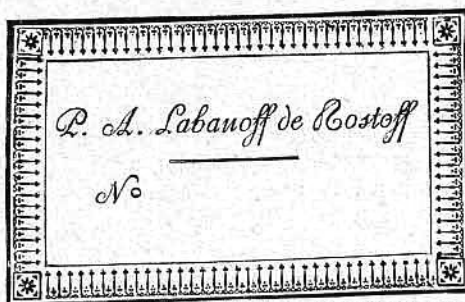 P. A. Labanoff de Rostoff
No